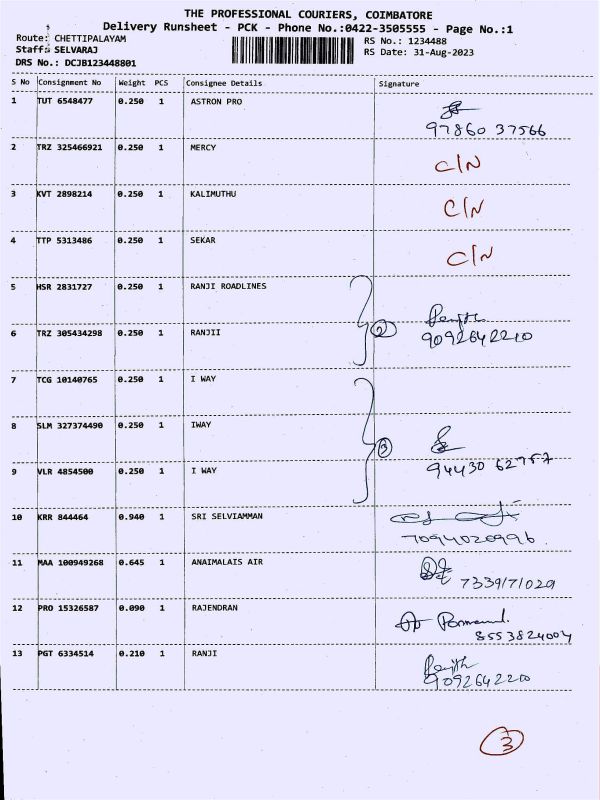 THE PROFESSIONAL COURIERS, COIMBATORE
Delivery Runsheet - PCK - Phone No.:0422-3505555 - Page No.:1
Route: CHETTIPALAYAM RS No.: 1234488
Staff: SELVARAJ RS Date: 31-Aug-2023
DRS No.: DCJB123448801
S No Consignment No Weight PCS Consignee Details Signature
1 TUT 6548477 0.250 1 ASTRON PRO
97860 37566
2 TRZ 325466921 0.250 1 MERCY C/N
3 KVT 2898214 0.250 1 KALIMUTHU C/N
4 TTP 5313486 0.250 1 SEKAR C/N
5 HSR 2831727 0.250 1 RANJI ROADLINES
2
6 TRZ 305434298 0.250 1 RANJII 9092642210
7 TCG 10140765 0.250 1 I WAY
8 SLM 327374490 0.250 1 IWAY
3
9 VLR 4854500 0.250 1 I WAY
10 KRR 844464 0.940 1 SRI SELVIAMMAN
7094020996
11 MAA 100949268 0.645 1 ANAIMALAIS AIR
12 PRO 15326587 0.090 1 RAJENDRAN
8553824004
13 PGT 6334514 0.210 1 RANJI
3